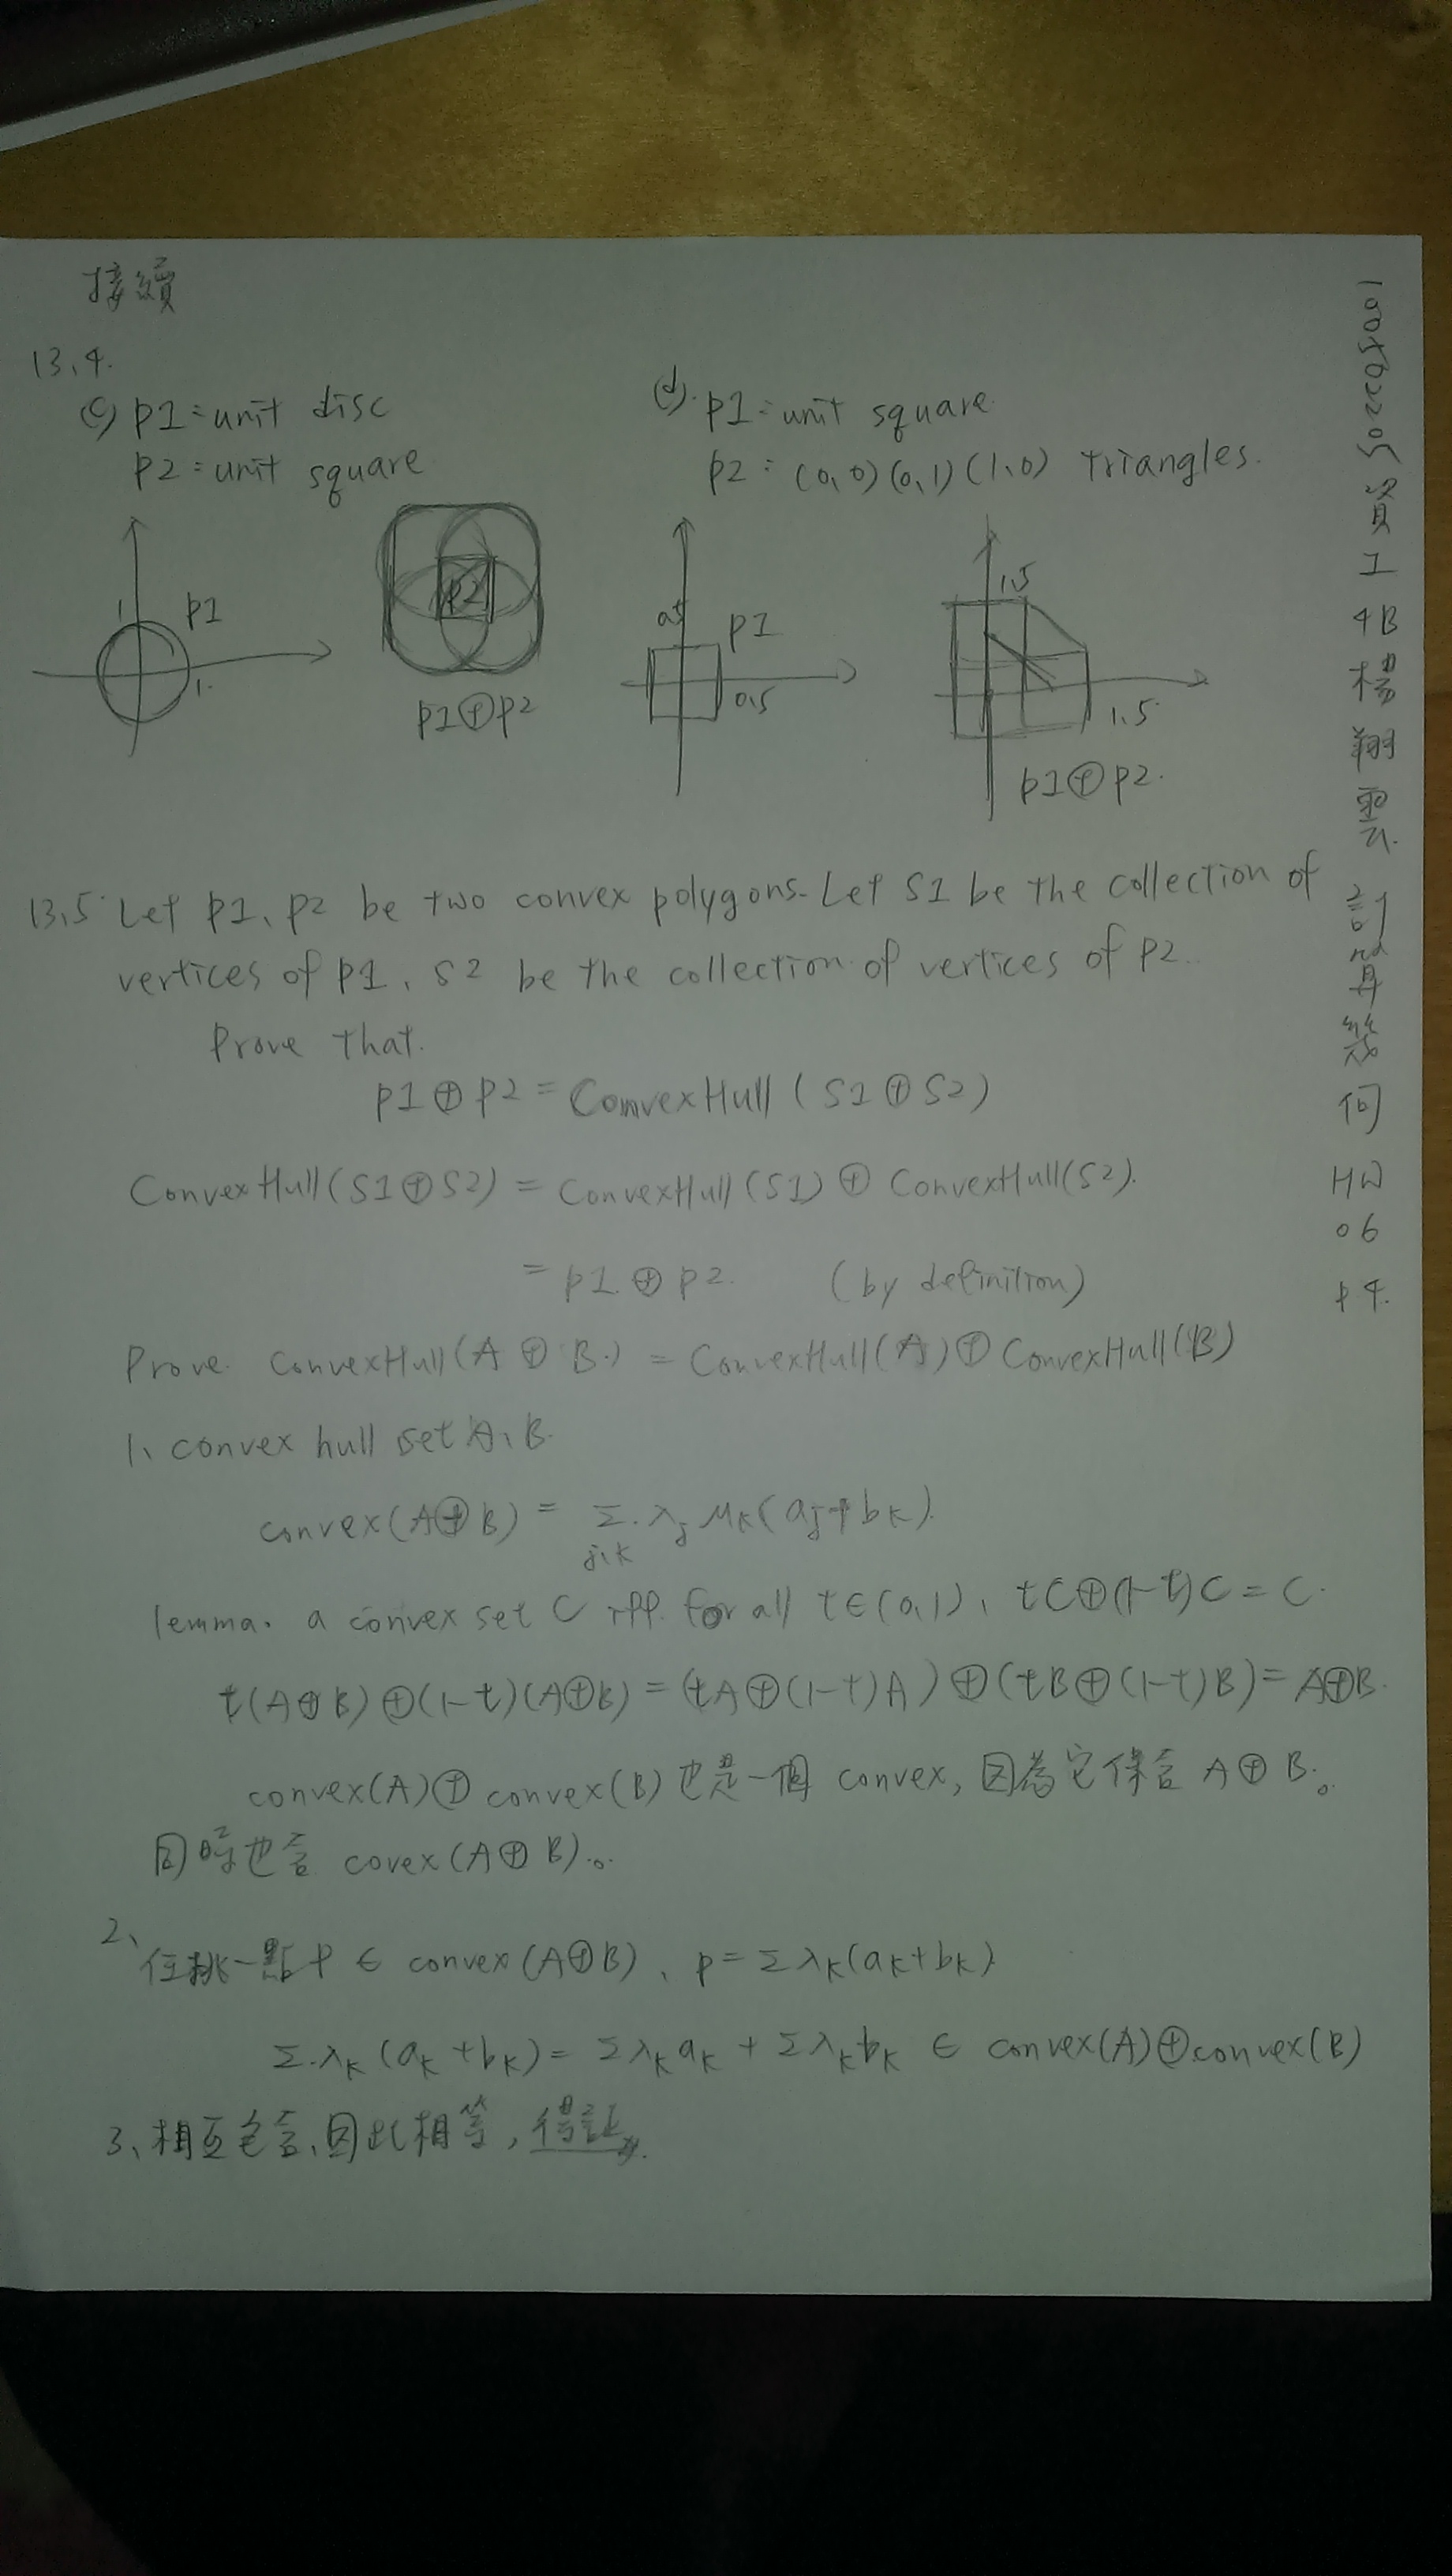 接續
13.4.
(c) P1 = unit disc
P2 = unit square
1
P1
1
P2
P1⊕P2
(d). P1 = unit square
P2 = (0,0)(0,1)(1,0) triangles.
0.5
P1
0.5
1.5
1.5
P1⊕P2.
13.5 Let P1, P2 be two convex polygons. Let S1 be the collection of
vertices of P1, S2 be the collection of vertices of P2.
Prove that.
P1⊕P2 = ConvexHull (S1⊕S2)
ConvexHull(S1⊕S2) = ConvexHull(S1)⊕ConvexHull(S2).
= P1⊕P2. (by definition)
Prove ConvexHull(A⊕B) = ConvexHull(A)⊕ConvexHull(B)
1、convex hull set A、B.
convex(A⊕B) = Σ j,k λj μk(aj+bk)
lemma. a convex set C iff for all t∈(0,1)、tC⊕(1-t)C = C.
t(A⊕B)⊕(1-t)(A⊕B) = (tA⊕(1-t)A)⊕(tB⊕(1-t)B) = A⊕B.
convex(A)⊕convex(B)也是一個convex,因為它保含A⊕B。
同時也含covex(A⊕B)。
2、
任挑一點P∈convex(A⊕B)、P=Σλk(ak+bk)
Σλk(ak+bk)=Σλkak+Σλkbk∈convex(A)⊕convex(B)
3、相互包含、因此相等,得証
資工4B楊翔雲 計算幾何 HW06 P4.